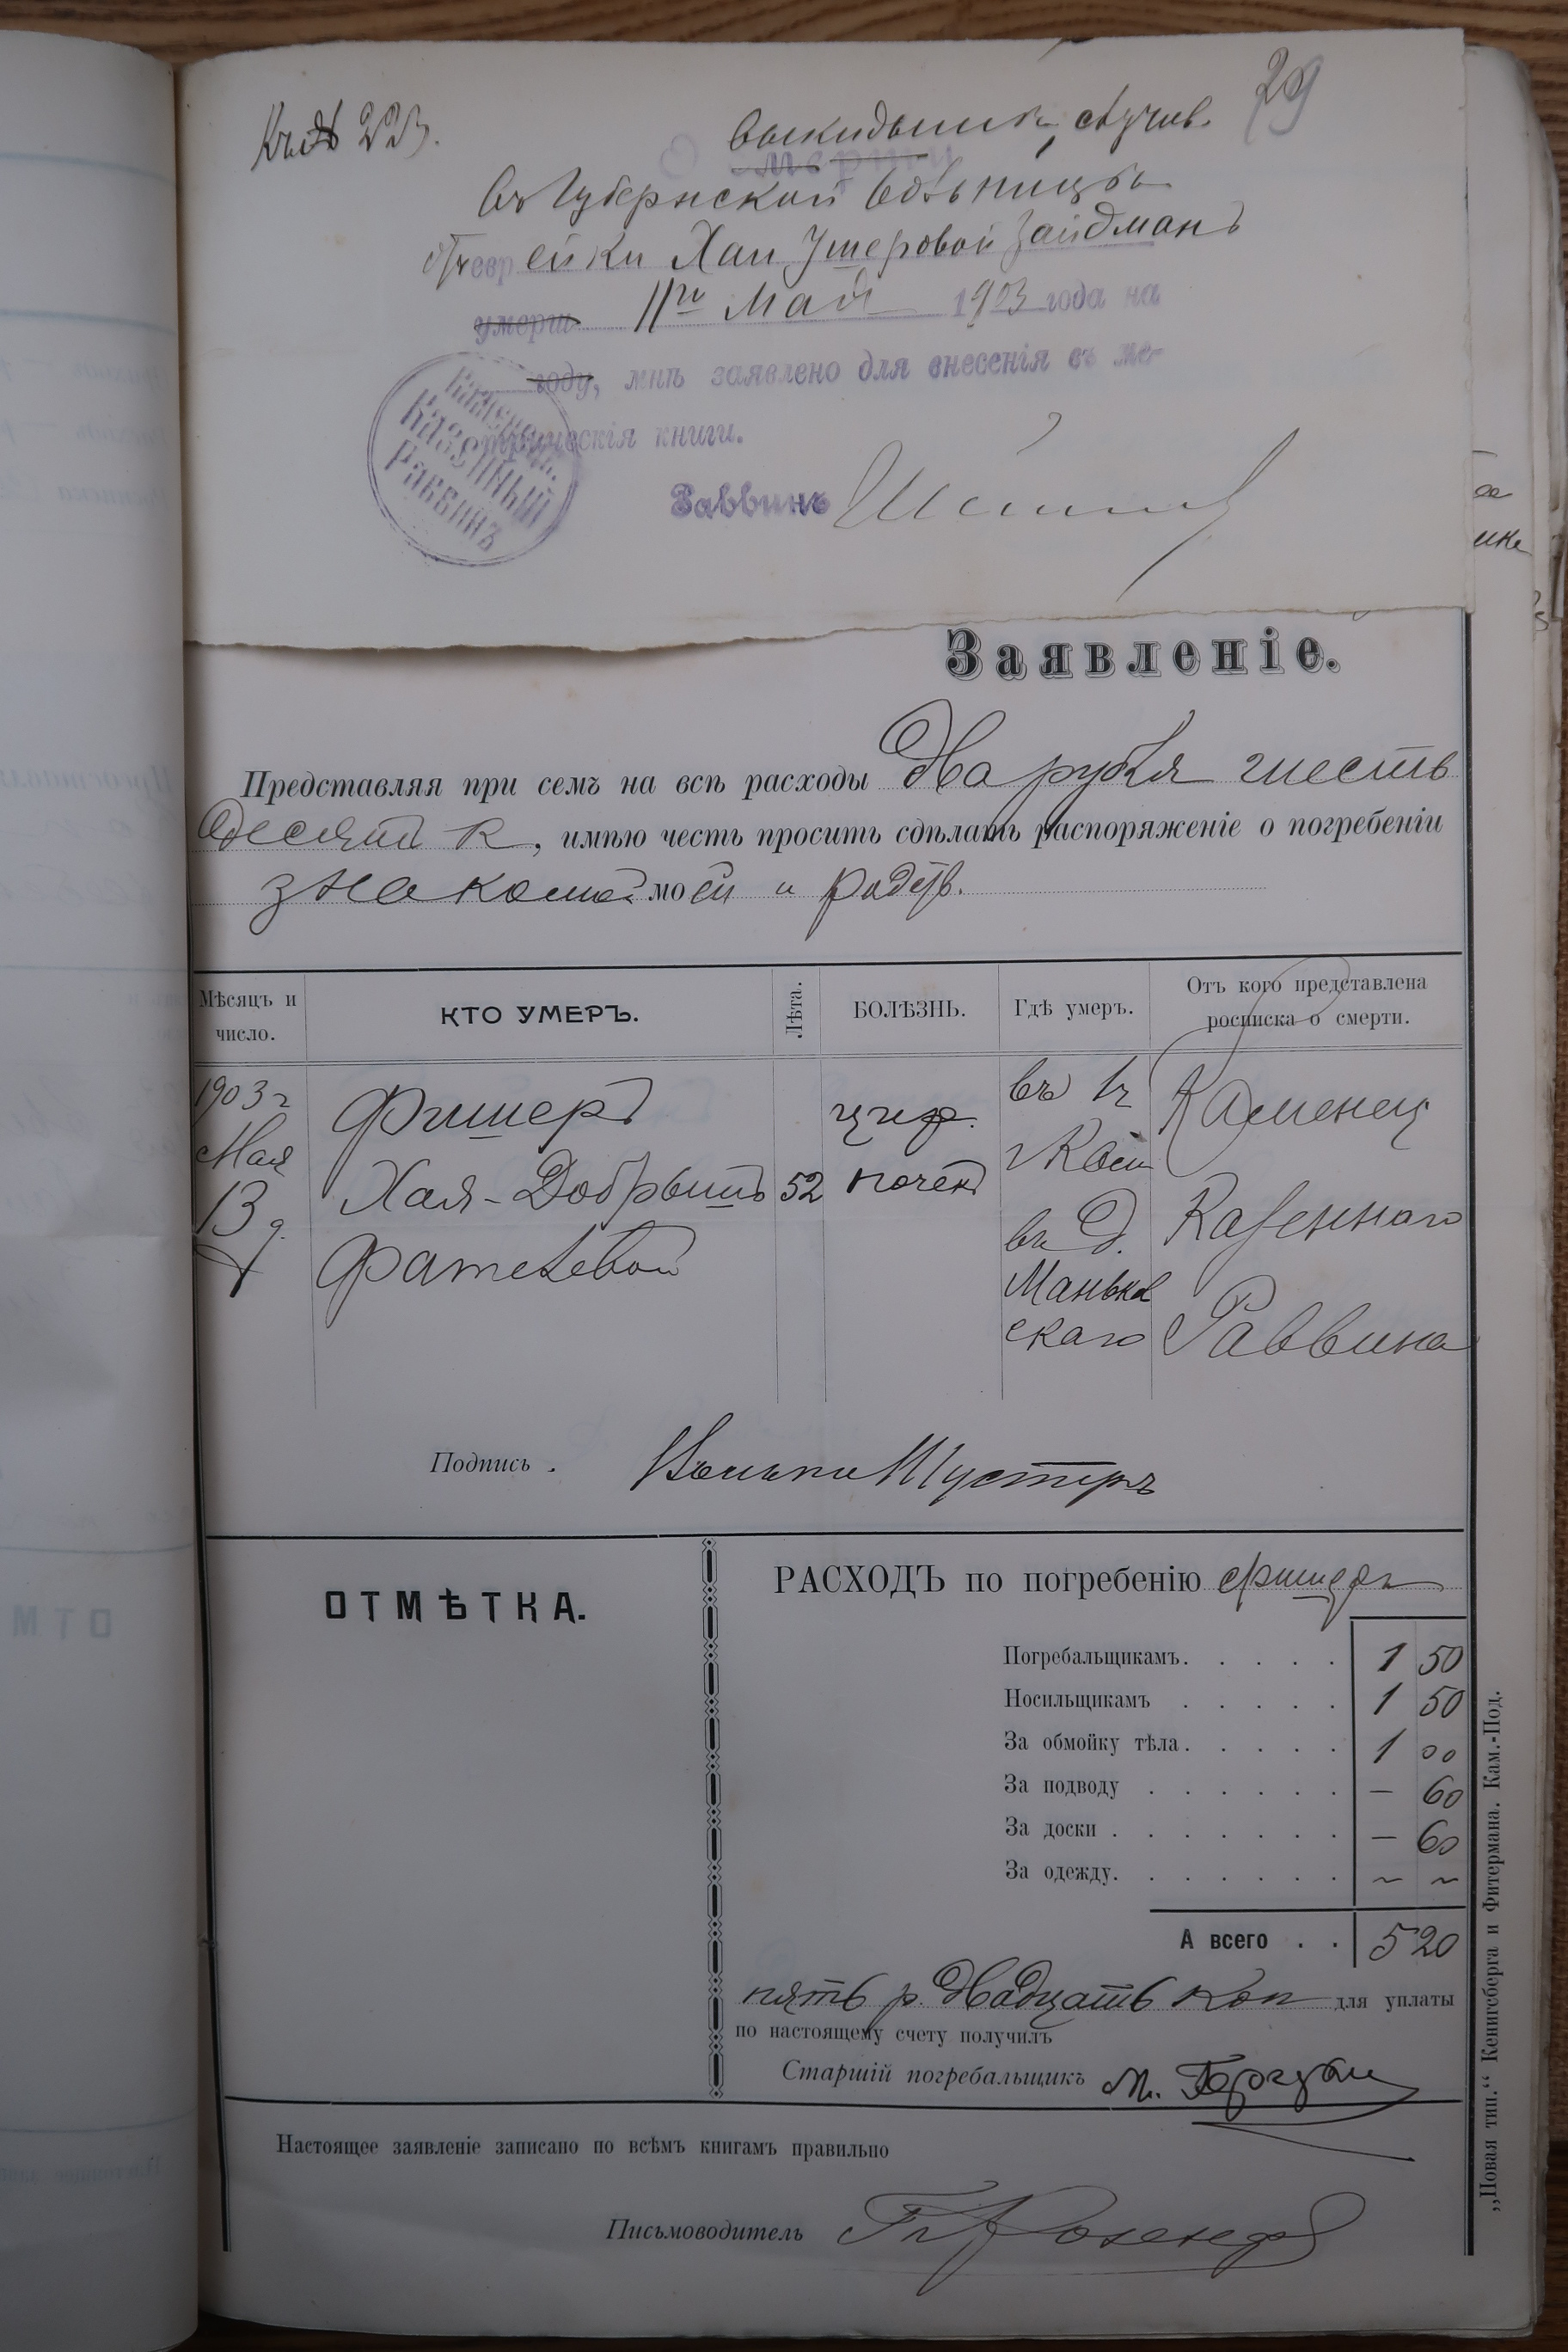 Къ № 223.
29
Выкидышъ, случив.
О смерти
въ Губернской больницѣ
отъ еврейки Хаи Ушеровой Зайдманъ
умерш 11го Мая 1903 года на
году, мнѣ заявлено для внесенія въ ме-
трическія книги.
Казенный
Раввинъ
Раввинъ
Заявленіе.
Представляя при семъ на всѣ расходы Два рубля шесть
десятъ к, имѣю честь просить сдѣлать распоряженіе о погребеніи
знакомой моей и родств.
Мѣсяцъ и число.
КТО УМЕРЪ.
Лѣта.
БОЛѢЗНЬ.
Гдѣ умеръ.
Отъ кого представлена росписка о смерти.
1903 г
Мая
13 д.
Фишеръ
Хая-Добрышъ
Фателевой
52
цир.
печен
въ д.
Маньков
скаго
Каменец
Казеннаго
Раввина
Подпись . Шустеръ
ОТМѢТКА.
РАСХОДЪ по погребенію Фишеръ
Погребальщикамъ. 1 50
Носильщикамъ 1 50
За обмойку тѣла. 1 00
За подводу — 60
За доски . — 60
За одежду. ~ ~
А всего . . 5 20
пять р. двадцать коп для уплаты
по настоящему счету получилъ
Старшій погребальщикъ М.
Настоящее заявленіе записано по всѣмъ книгамъ правильно
Письмоводитель
„Новая тип.“ Кенигсберга и Фитермана. Кам.-Под.